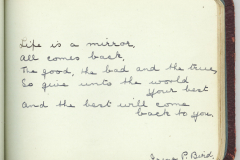 Life is a mirror,
All comes back,
The good, the bad and the true,
So give unto the world
your best
And the best will come
back to you.
P. Bird.